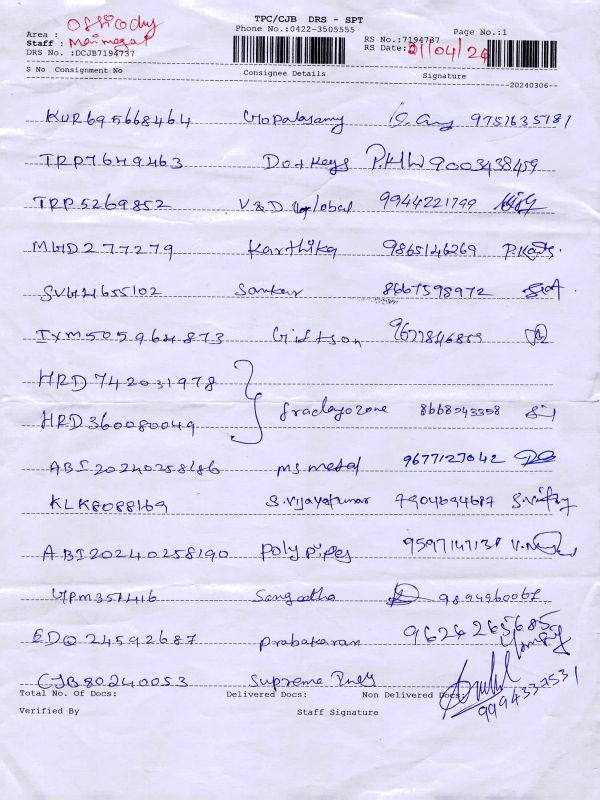 TPC/CJB DRS - SPT
Area : 
Phone No.:0422-3505555
RS No.:7194737
Page No.:1
Staff :
RS Date: 21/04/24
DRS No. :DCJB7194737
S No Consignment No Consignee Details Signature
20240306
KUR695668464 Gopalasamy 9751635181
TRP7649463 Dot Keys 9003438459
TRP5269852 V&D Global 9944221799
MGD277279 Karthika 9865146269
SVG4655102 Sankar 8667598972
TXM505964873 Giftson 9677846859
HRD742031978
HRD360080049 8668043358
ABI20240258186 Ms metal 9677127042
KLK8088169 S.Vijayakumar 7904694687
ABI20240258190 Poly Pipes 9597147131
GPM351416 Sangeetha 9894960067
EDQ24592687 Prabakaran 9626265685
CJB80240053 Supreme 9994337531
Total No. Of Docs: Delivered Docs: Non Delivered Docs:
Verified By Staff Signature